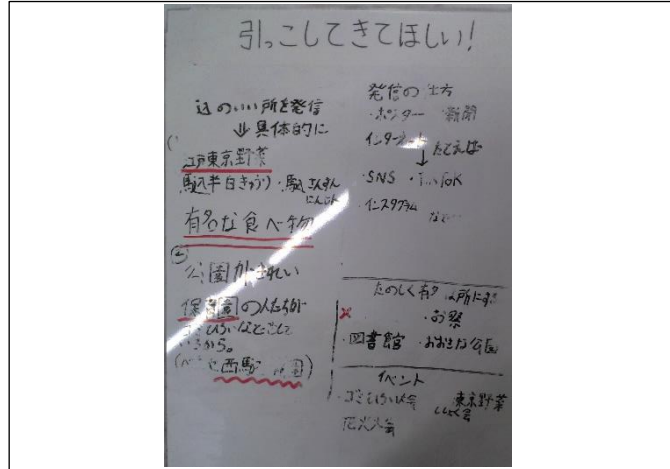 引っこしてきてほしい!
辺のいい所を発信
⇓具体的に
江戸東京野菜
駒込半白きゅうり・駒込さんずん
にんじん
有名な食べ物
②
公園がきれい
保育園の人たちが
ゴミひろいなどをして
いるから。
西駒
発信の仕方
・ポスター 新聞
インターネット
↓たとえば
・SNS ・TikTok
・インスタグラム
など
たのしく有名
・お祭
・図書館 ・おおきな公園
イベント
・ゴミひろい大会 東京野菜
花火大会